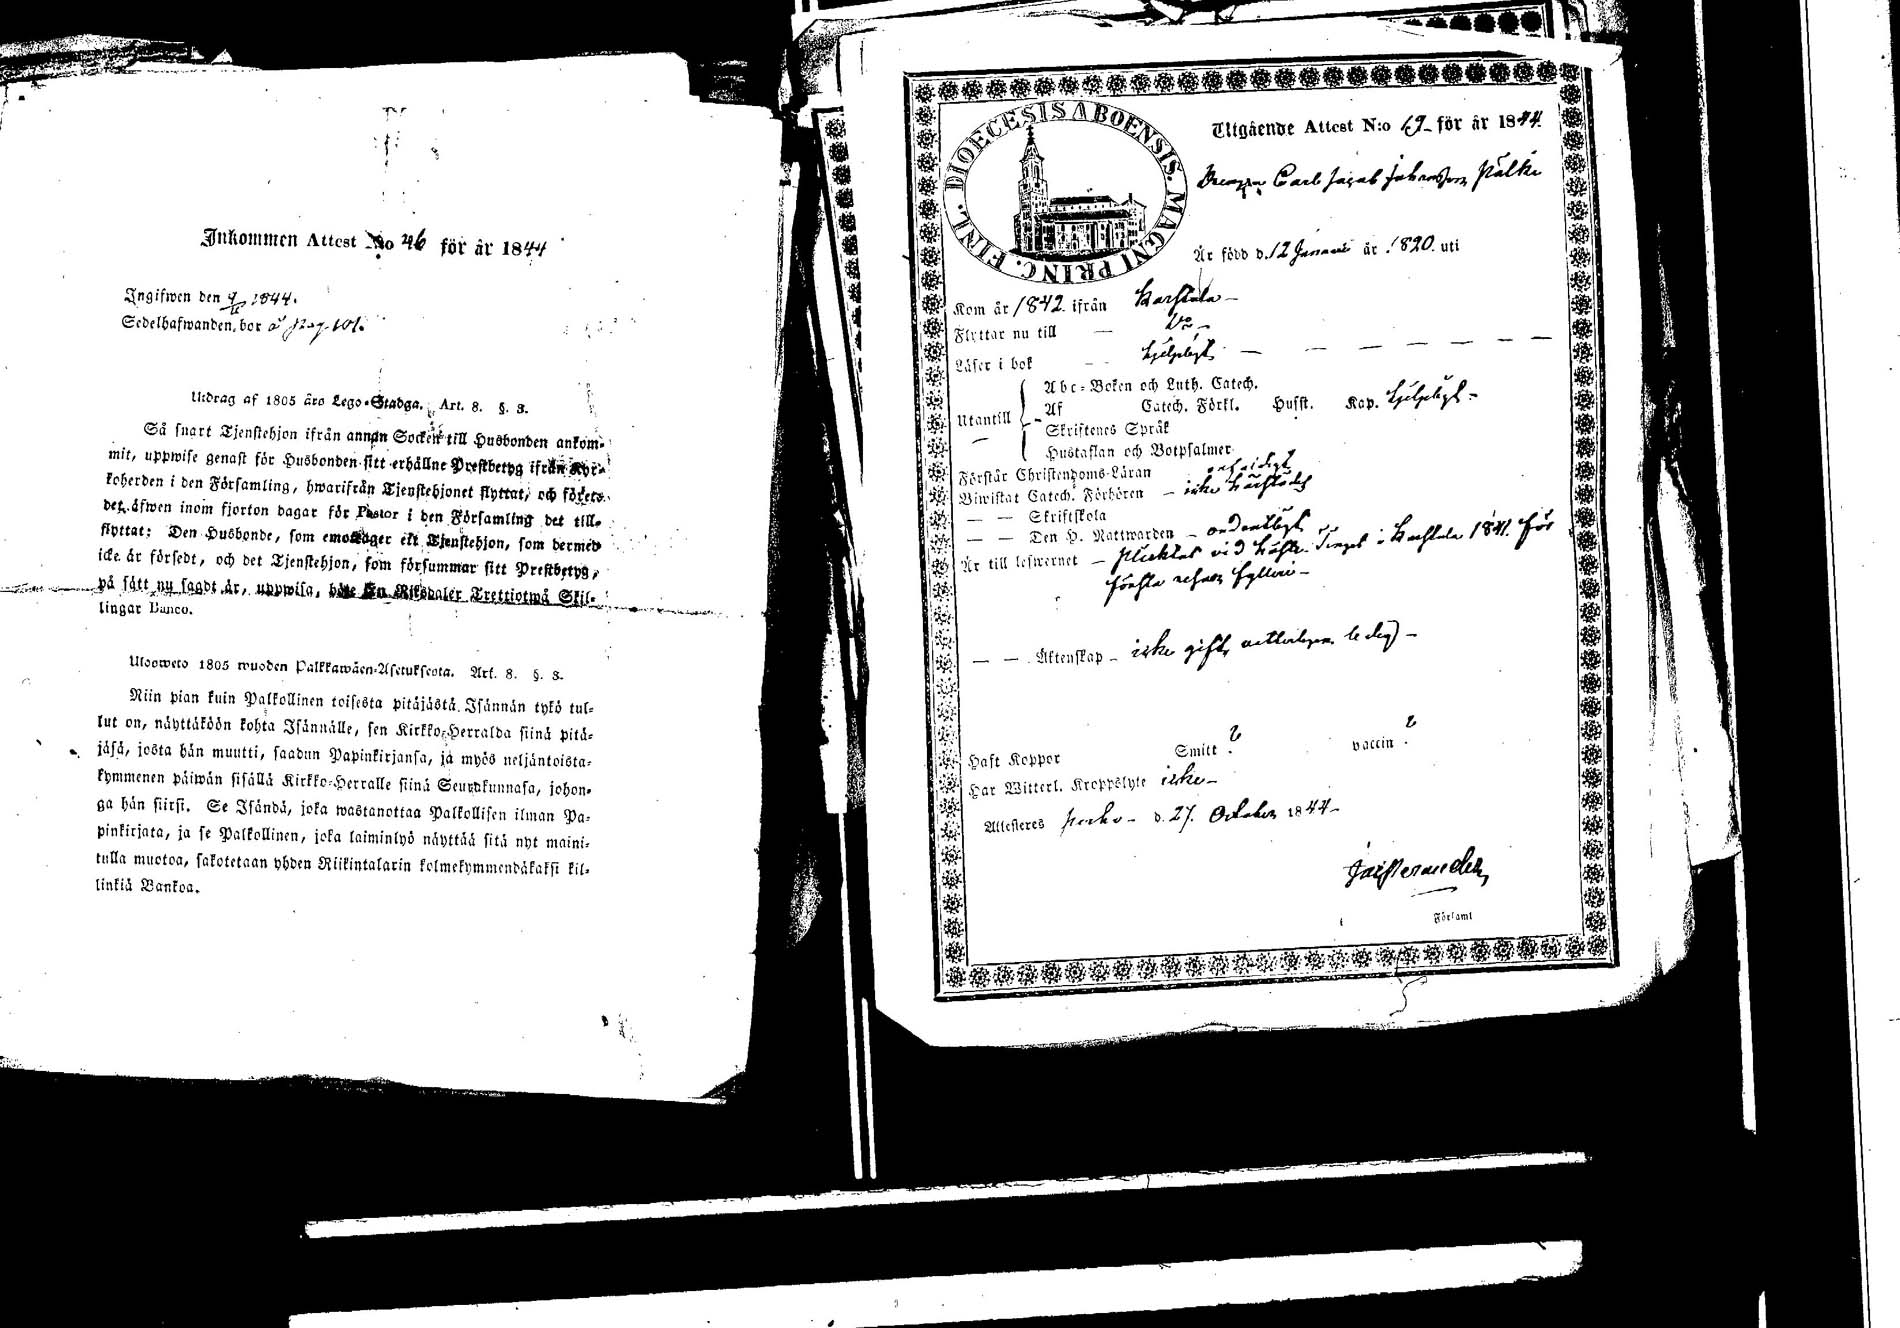 Inkommen Attest No 46 för år 1844
Ingifwen den 9/11 1844.
Sedelhafwanden bor å pag. 101.
Utdrag af 1805 års Lego-Stadga. Art. 8. §. 3.
Så snart Tjenstehjon ifrån annan Socken till Husbonden ankom-
mit, uppwise genast för Husbonden sitt erhållne Prestbetyg ifrån Kyr-
koherden i den Församling, hwarifrån Tjenstehjonet flyttat, och förete
det äfwen inom fjorton dagar för Pastor i den Församling det till-
flyttat: Den Husbonde, som emottager ett Tjenstehjon, som dermed
icke är försedt, och det Tjenstehjon, som försummar sitt Prestbetyg,
på sätt nu sagdt är, uppwisa, böte En Riksdaler Trettiotwå Skil-
lingar Banco.
Ulosweto 1805 wuoden Palkkawäen-Asetuksesta. Art. 8. §. 3.
Niin pian kuin Palkollinen toisesta pitäjästä Isännän tykö tul-
lut on, näyttäköön kohta Isännälle, sen Kirkko-Herralda siinä pitä-
jäsä, josta hän muutti, saadun Papinkirjansa, ja myös neljäntoista-
kymmenen päiwän sisällä Kirkko-Herralle siinä Seurakunnasa, johon-
ga hän siirsi. Se Isändä, joka wastanottaa Palkollisen ilman Pa-
pinkirjata, ja se Palkollinen, joka laiminlyö näyttää sitä nyt maini-
tulla muotoa, sakotetaan yhden Riikintalarin kolmekymmendäkaksi kil-
linkiä Bankoa.
DIOECESIS ABOENSIS. MAGNI PRINC. FINL.
Utgående Attest N:o 69 för år 1844.
Drengen Carl Jacob Johansson Pälki
Är född d. 12 Januarii år 1820. uti
Kom år 1842 ifrån Karstula –
Flyttar nu till — Do –
Läser i bok – hjelpligt — — — — — —
Abc-Boken och Luth. Catech.
Utantill Af Catech. Förkl. Husst. Kap. hjelpligt –
Skriftenes Språk
Hustaflan och Botpsalmer
Förstår Christendoms-Läran
Biwistat Catech. Förhören – icke
— — Skriftskola
— — Den H. Nattwarden – ordentligt
Är till lefwernet – pliktat vid Höste Tinget i Karstula 1841. för
första resan fylleri –
— — Äktenskap – icke gift, ledig –
Haft Koppor Smitt ? vaccin ?
Har Witterl. Kroppslyte icke –
Attesteres – d. 27. October 1844 –
Församl